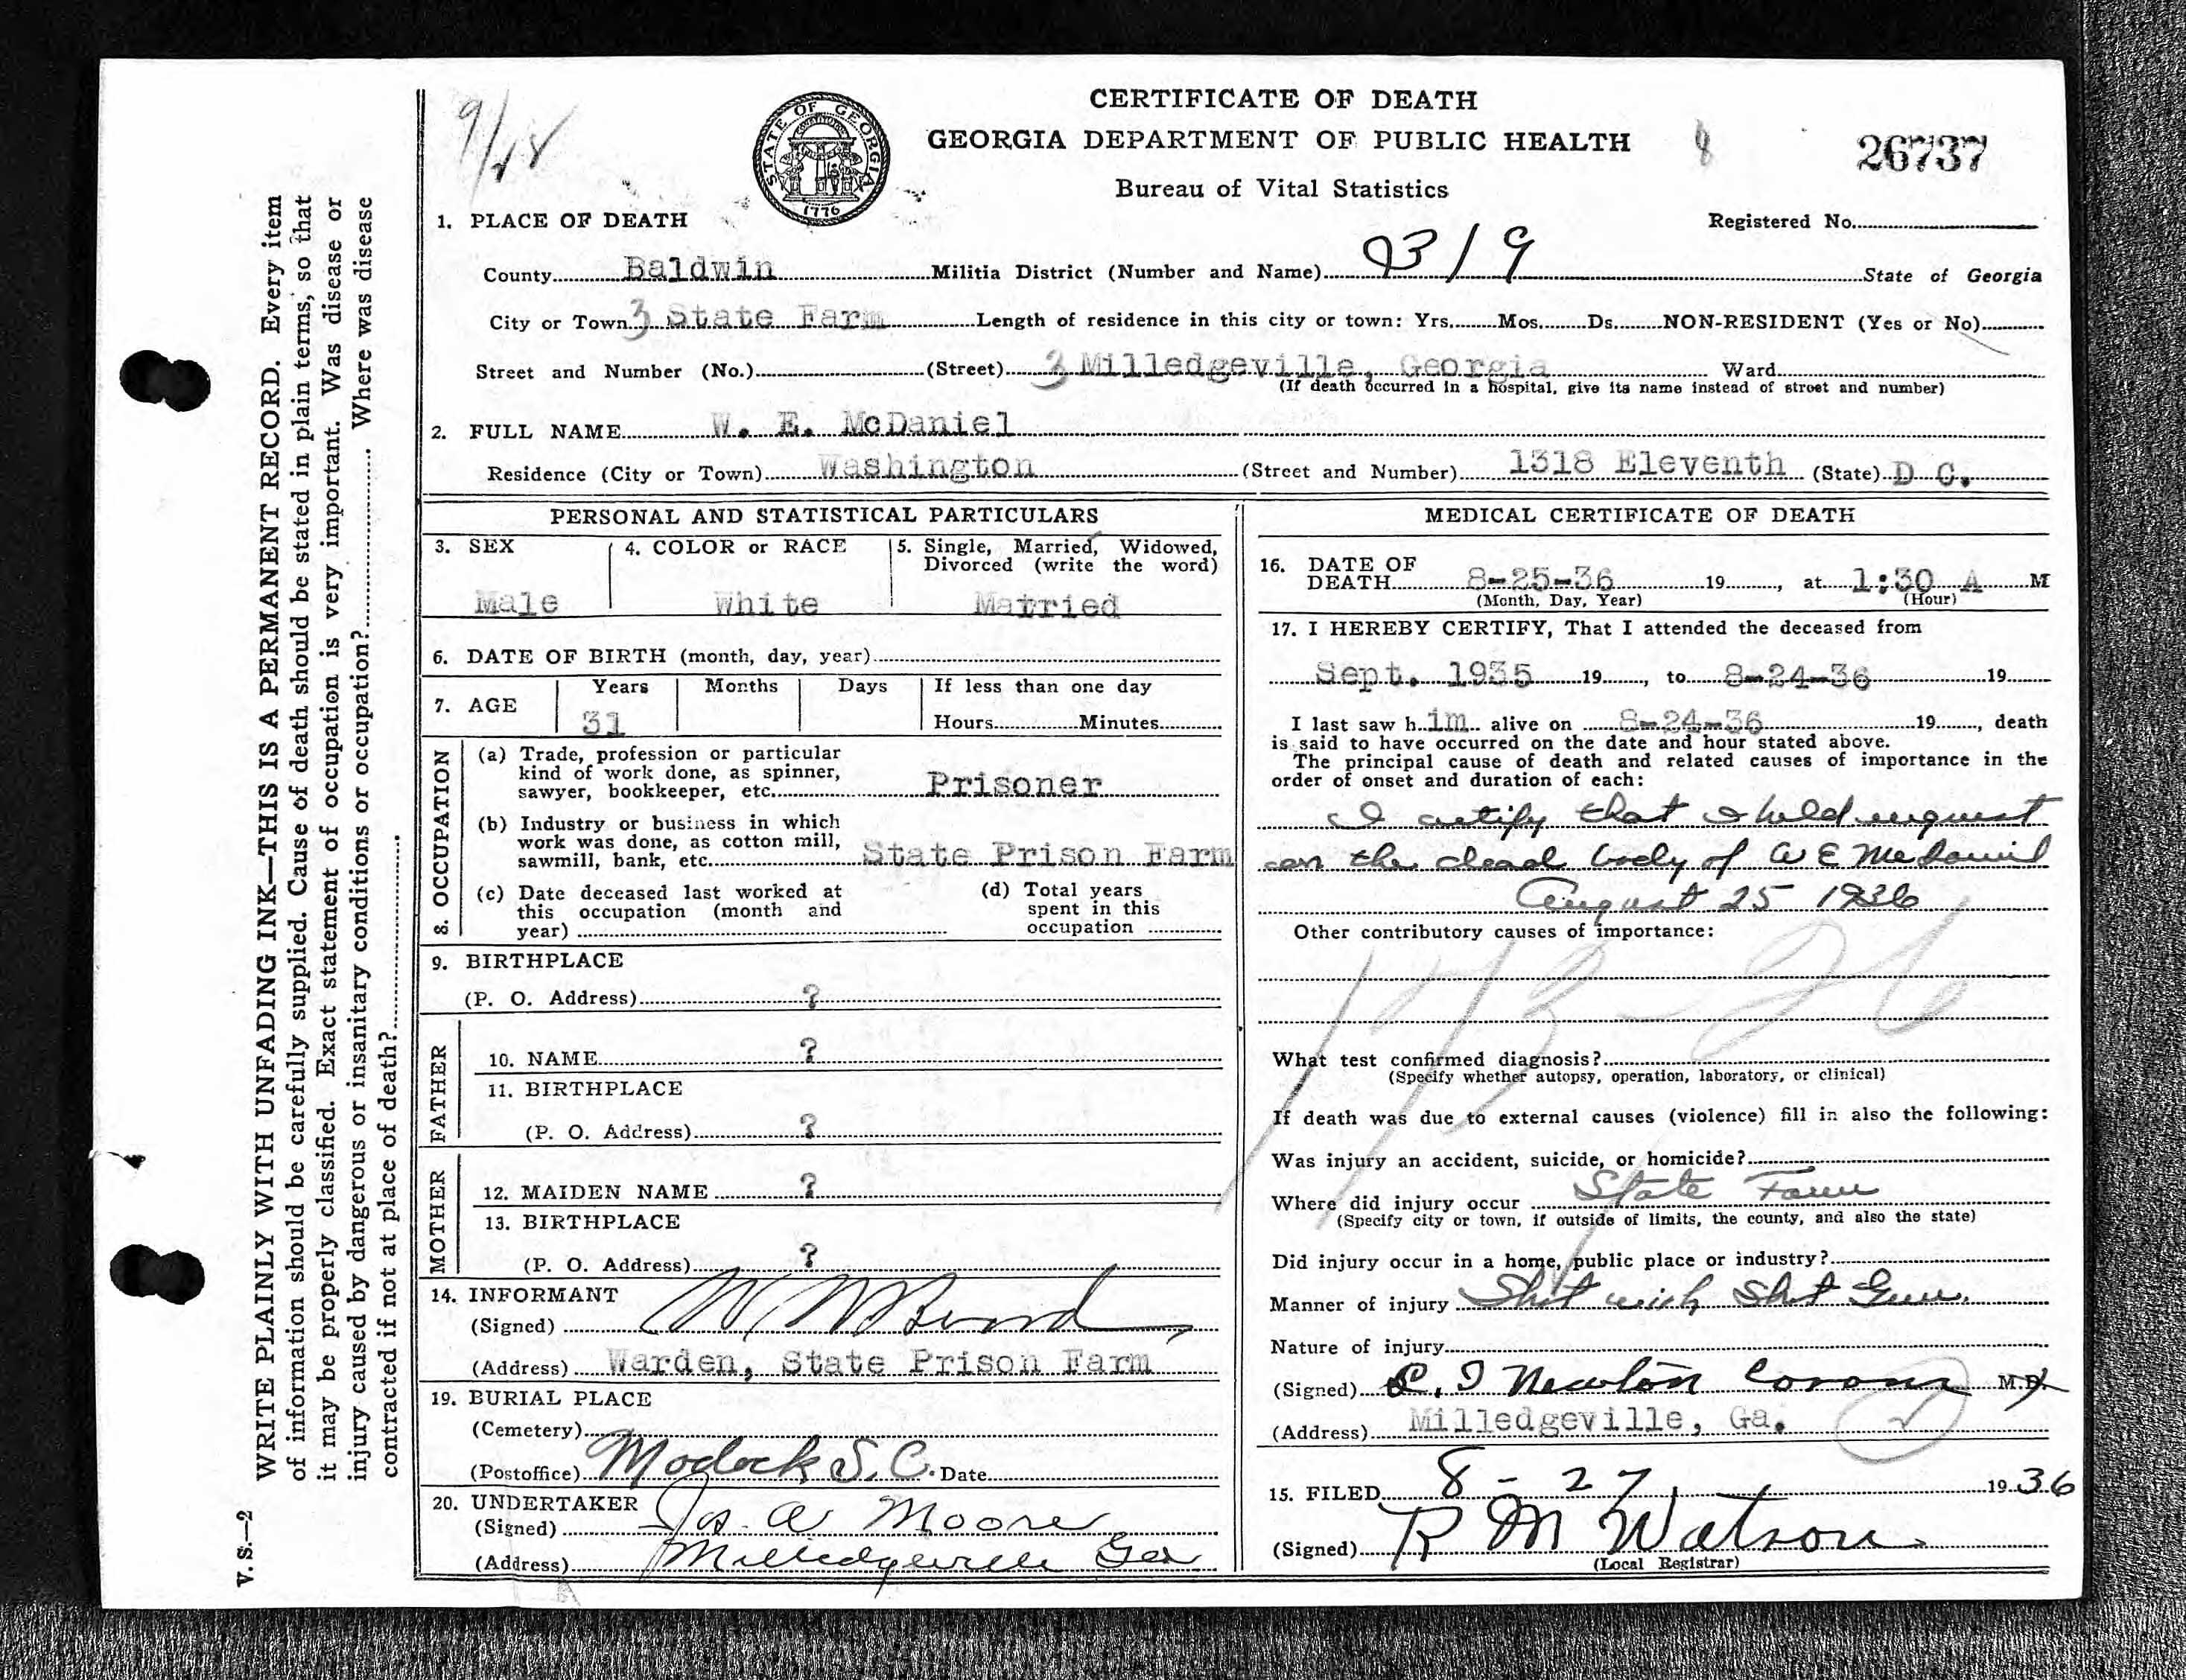 9/28
STATE OF GEORGIA
CONSTITUTION
1776
CERTIFICATE OF DEATH
GEORGIA DEPARTMENT OF PUBLIC HEALTH
Bureau of Vital Statistics
26737
Registered No.
1. PLACE OF DEATH
County Baldwin Militia District (Number and Name) 319 State of Georgia
City or Town 3 State Farm Length of residence in this city or town: Yrs. Mos. Ds. NON-RESIDENT (Yes or No)
Street and Number (No.) (Street) Milledgeville, Georgia Ward
(If death occurred in a hospital, give its name instead of street and number)
2. FULL NAME W. E. McDaniel
Residence (City or Town) Washington (Street and Number) 1318 Eleventh (State) D C.
PERSONAL AND STATISTICAL PARTICULARS
3. SEX 4. COLOR or RACE 5. Single, Married, Widowed,
Divorced (write the word)
Male White Matried
6. DATE OF BIRTH (month, day, year)
7. AGE Years Months Days If less than one day
31 Hours Minutes
8. OCCUPATION
(a) Trade, profession or particular
kind of work done, as spinner,
sawyer, bookkeeper, etc. Prisoner
(b) Industry or business in which
work was done, as cotton mill,
sawmill, bank, etc. State Prison Farm
(c) Date deceased last worked at (d) Total years
this occupation (month and spent in this
year) occupation
9. BIRTHPLACE
(P. O. Address) ?
FATHER
10. NAME ?
11. BIRTHPLACE
(P. O. Address) ?
MOTHER
12. MAIDEN NAME ?
13. BIRTHPLACE
(P. O. Address) ?
14. INFORMANT
(Signed)
(Address) Warden, State Prison Farm
19. BURIAL PLACE
(Cemetery)
(Postoffice) Modock S. C. Date
20. UNDERTAKER
(Signed) Jos. A Moore
(Address) Milledgeville Ga
MEDICAL CERTIFICATE OF DEATH
16. DATE OF
DEATH 8-25-36 19 , at 1:30 A M
(Month, Day, Year) (Hour)
17. I HEREBY CERTIFY, That I attended the deceased from
Sept. 1935 19 , to 8-24-36 19
I last saw him alive on 8-24-36 19 , death
is said to have occurred on the date and hour stated above.
The principal cause of death and related causes of importance in the
order of onset and duration of each:
I certify that I held inquest
on the dead body of W E McDaniel
August 25 1936
Other contributory causes of importance:
173-26
What test confirmed diagnosis?
(Specify whether autopsy, operation, laboratory, or clinical)
If death was due to external causes (violence) fill in also the following:
Was injury an accident, suicide, or homicide?
Where did injury occur State Farm
(Specify city or town, if outside of limits, the county, and also the state)
Did injury occur in a home, public place or industry?
Manner of injury Shot with Shot Gun.
Nature of injury
(Signed) C. I Newton Coroner M.D.
(Address) Milledgeville, Ga.
15. FILED 8-27 1936
(Signed) R M Watson
(Local Registrar)
WRITE PLAINLY WITH UNFADING INK—THIS IS A PERMANENT RECORD. Every item
of information should be carefully supplied. Cause of death should be stated in plain terms, so that
it may be properly classified. Exact statement of occupation is very important. Was disease or
injury caused by dangerous or insanitary conditions or occupation? Where was disease
contracted if not at place of death?
V. S.—2